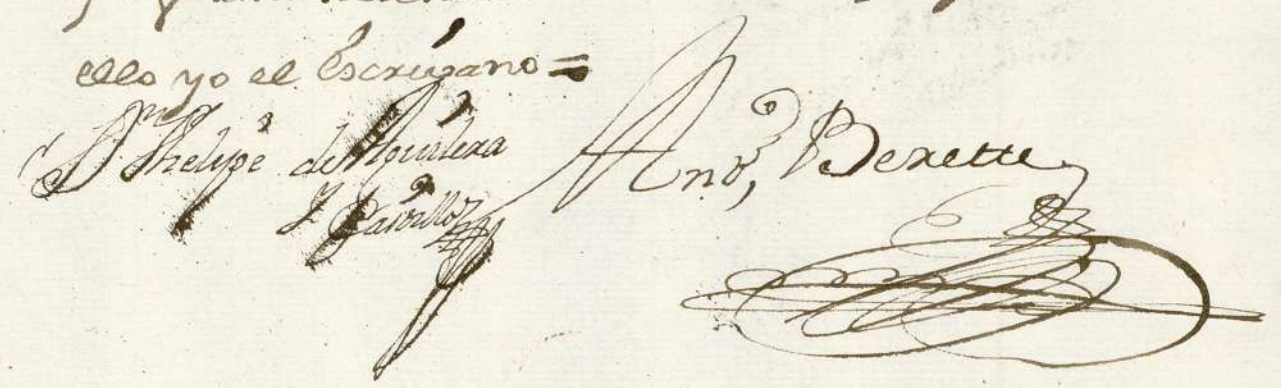 ello yo el Escrivano =
Dn Phelipe de Aguilera
Y Carrillo
Anto, Berette